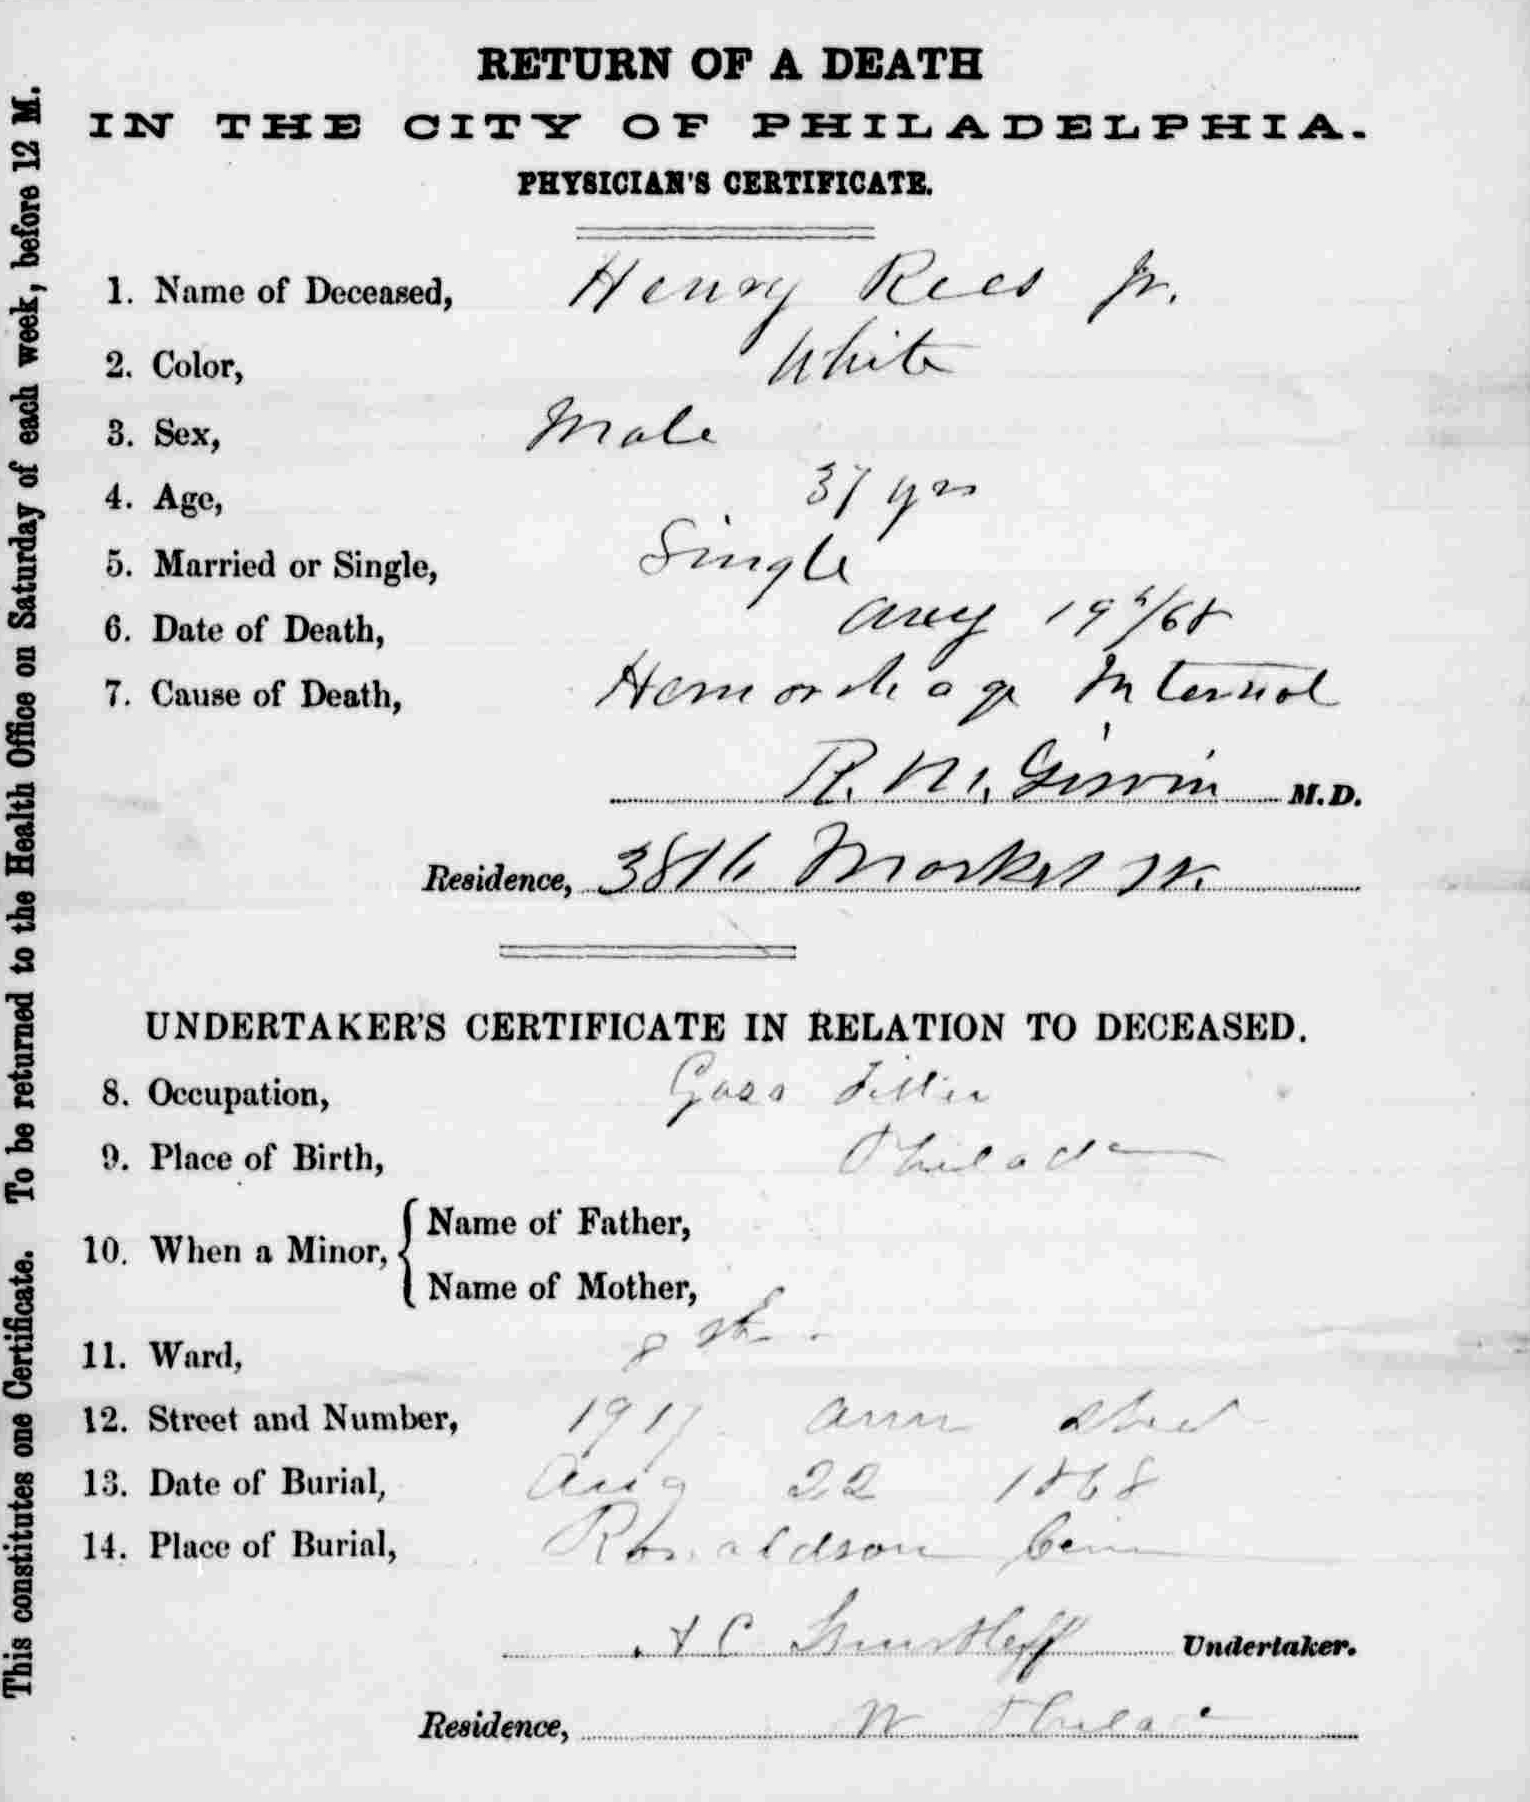 RETURN OF A DEATH
IN THE CITY OF PHILADELPHIA.
PHYSICIAN'S CERTIFICATE.
1. Name of Deceased, Henry Rees Jr.
2. Color, White
3. Sex, Male
4. Age, 37 yrs
5. Married or Single, Single
6. Date of Death, Aug 19th/68
7. Cause of Death, Hemorrhage Internal
R. M. Girvin M.D.
Residence, 3816 Market St.
UNDERTAKER'S CERTIFICATE IN RELATION TO DECEASED.
8. Occupation, Gass Fitter
9. Place of Birth, Philada
10. When a Minor, { Name of Father,
Name of Mother,
11. Ward, 8th
12. Street and Number, 1917 Ann Street
13. Date of Burial, Aug 22 1868
14. Place of Burial, Ronaldson Cem
Undertaker.
Residence, W Philad
This constitutes one Certificate. To be returned to the Health Office on Saturday of each week, before 12 M.